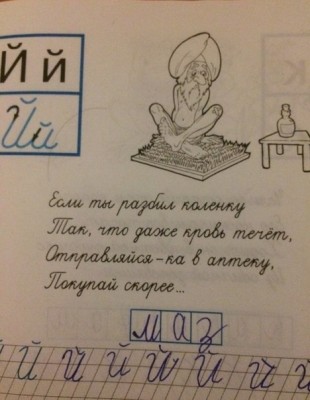 Й й
Йй
К
Если ты разбил коленку
Так, что даже кровь течёт,
Отправляйся-ка в аптеку,
Покупай скорее...
маз
й й й й й й й й й